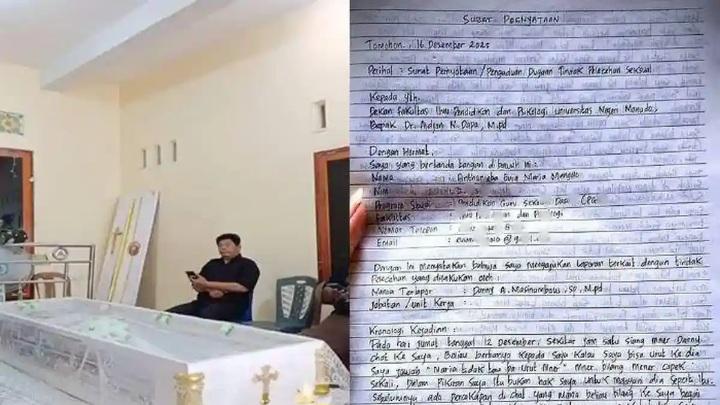 SURAT PERNYATAAN
Tomohon, 16 Desember 2025
Perihal : Surat Pernyataan / Pengaduan Dugaan Tindak Pelecehan Seksual
Kepada Yth.
Dekan Fakultas Ilmu Pendidikan dan Psikologi Universitas Negeri Manado,
Bapak Dr. Aldjon N. Dapa, M.Pd
Dengan Hormat,
Saya yang bertanda tangan dibawah ini :
Nama : Evia Maria Mangolo
Nim
Program Studi : Pendidikan Guru Sekolah Dasar
Fakultas : dan
Nomor Telepon
Email
Dengan ini menyatakan bahwa saya mengajukan laporan terkait dengan tindak
Pelecehan yang dilakukan oleh :
Nama Terlapor : Danny A. Masinambow, SP, M.Pd
Jabatan / unit Kerja :
Kronologi Kejadian :
Pada hari Jumat tanggal 12 Desember, sekitar jam satu siang mner Danny
chat ke saya, Beliau bertanya kepada saya kalau saya bisa urut ke dia
saya jawab "Maria tidak tau ba urut mner" mner bilang mner capek
sekali, Dalam pikiran saya itu bukan hak saya untuk melayani dia seperti itu
sebelumnya ada percakapan di chat yang mana beliau bilang ke saya begini